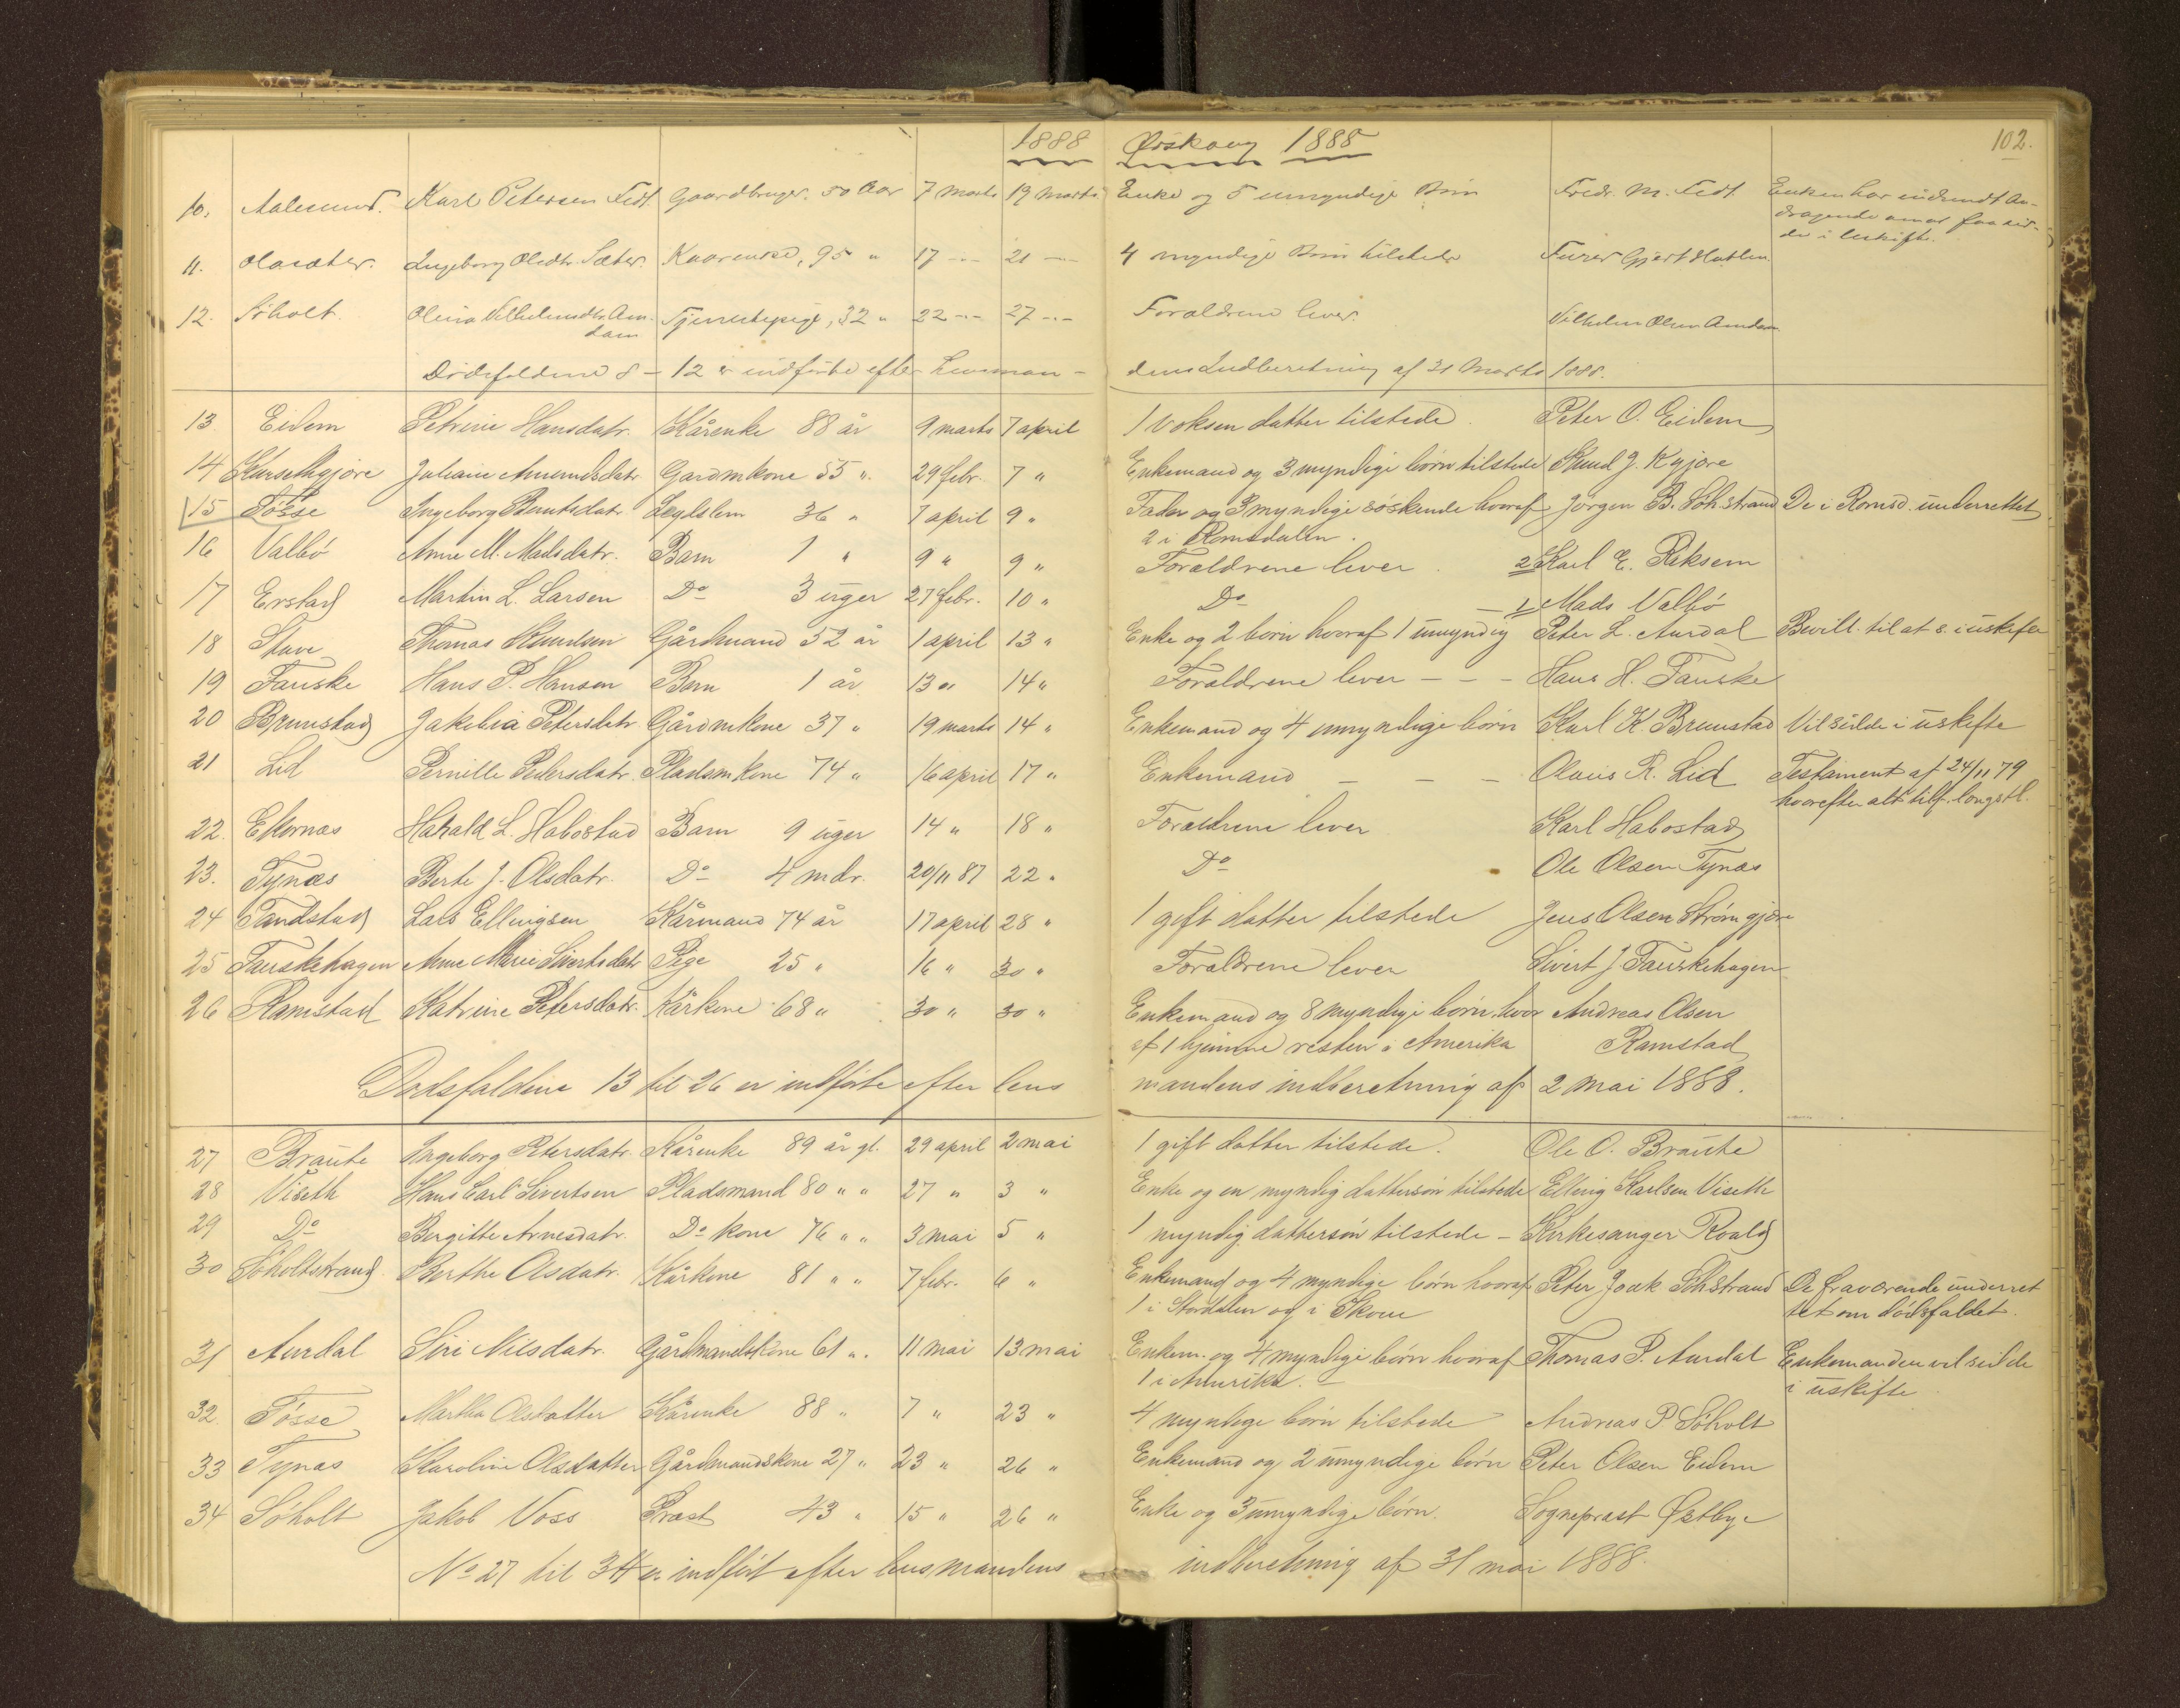 1888 Ørskoug 1888 102.
10. Aalesund. Karl Petersen Fedt. Gaardbruger. 50 Aar 7 marts 19 marts Enke og 5 umyndige Børn Fredr. M. Fedt. Enken har indsendt An-
dragende om at faa sid-
de i Uskifte.
11. Olasæter. Ingeborg Olsdtr. Sæter. Kaarenke, 95 " 17 -- 21 -- 4 myndige Børn tilstede Gjert Hatlen
12. Søholt. Olina Vilhelmsdtr. Am-
dam Tjenestepige, 32 " 22 -- 27 -- Forældrene lever. Vilhelm Olsen Amdam
Dødsfaldene 8 - 12 er indførte efter Lensman- dens Indberetning af 31 Marts 1888.
13. Eidem Petrine Hansdatr. Kårenke 88 år 9 marts 7 april 1 voksen datter tilstede. Peter O. Eidem
14 Hursethgjøre Juliane Amundsdatr. Gardmkone 55 " 29 febr. 7 " Enkemand og 3 myndige børn tilstede Knud J. Kgjøre
15 Tøsse Ingeborg Berntsdatr. Legdslem 36 " 7 april 9 " Fader og 3 myndige søskende hvoraf Jørgen B. Søhstrand De i Romsd. underrettet
2 i Romsdalen.
16 Valbø Anne M. Madsdatr. Barn 1 " 9 " 9 " Forældrene lever. 2 Karl E. Reksem
17 Erstad Martin L. Larsen Do 3 uger 27 febr. 10 " Do — 1 Mads Valbø
18 Stave Thomas Knudsen Gårdmand 52 år 1 april 13 " Enke og 2 børn hvoraf 1 umyndig Peter L. Aurdal Bevill. til at s. i uskifte
19 Fauske Hans P. Hansen Barn 1 år 13 " 14 " Forældrene lever - - - Hans H. Fauske
20 Brunstad Jakobia Petersdtr. Gårdmkone 37 " 19 marts 14 " Enkemand og 4 umyndige børn Karl K. Brunstad Vil sidde i uskifte
21 Lid Pernille Pedersdatr. Pladsmkone 74 " 16 april 17 " Enkemand - - - Olaus R. Lid Testament af 24/11 79
hvorefter alt tilf. longstl.
22. Ekornæs Harald L. Habostad Barn 9 uger 14 " 18 " Forældrene lever Karl Habostad
23. Tynæs Berte J. Olsdatr. Do 4 mdr. 20/11 87 22 " Do Ole Olsen Tynæs
24 Tandstad Lars Ellingsen Kårmand 74 år 17 april 28 " 1 gift datter tilstede Jens Olsen Strømgjøre
25 Fauskehagen Anne Marie Sivertsdatr Pige 25 " 16 " 30 " Forældrene lever Sivert J. Fauskehagen
26 Ramstad Katrine Petersdatr. Kårkone 68 " 30 " 30 " Enkemand og 8 myndige børn, hvor Andreas Olsen
af 1 hjemme resten i Amerika Ramstad
Dødsfaldene 13 til 26 er indførte efter lens mandens indberetning af 2 mai 1888.
27 Braute Ingeborg Petersdatr. Kårenke 89 år gl. 29 april 2 mai 1 gift datter tilstede. Ole O. Braute
28 Viseth Hans Carl Sivertsen Pladsmand 80 " " 27 " 3 " Enke og en myndig dattersøn tilstede Elling Karlsen Viseth
29 Do Bergitte Arnesdatr. Do kone 76 " " 3 mai 5 " 1 myndig dattersøn tilstede - Kirkesanger Roald
30 Søholtstrand Berthe Olsdatr. Kårkone 81 " " 7 febr. 6 " Enkemand og 4 myndige børn hvoraf Peter Joak Søhstrand De fraværende underret
1 i Stordalen og i Skoue tet om dødsfaldet.
31 Aurdal Siri Nilsdatr. Gårdmandskone 61 " . 11 mai 13 mai Enkem. og 4 myndige børn hvoraf Thomas P. Aurdal Enkemanden vil sidde
1 i Amerika. - i uskifte
32. Tøsse Martha Olsdatter Kårenke 88 " 7 " 23 " 4 myndige børn tilstede Andreas P Søholt
33 Tynæs Karoline Olsdatter Gårdmandskone 27 " 23 " 26 " Enkemand og 2 umyndige børn Peter Olsen Eidem
34 Søholt Jakob Voss Præst 43 " 15 " 26 " Enke og 3 umyndige børn. Sogneprest Østbye
No 27 til 34 er indført efter lensmandens indberetning af 31 mai 1888.